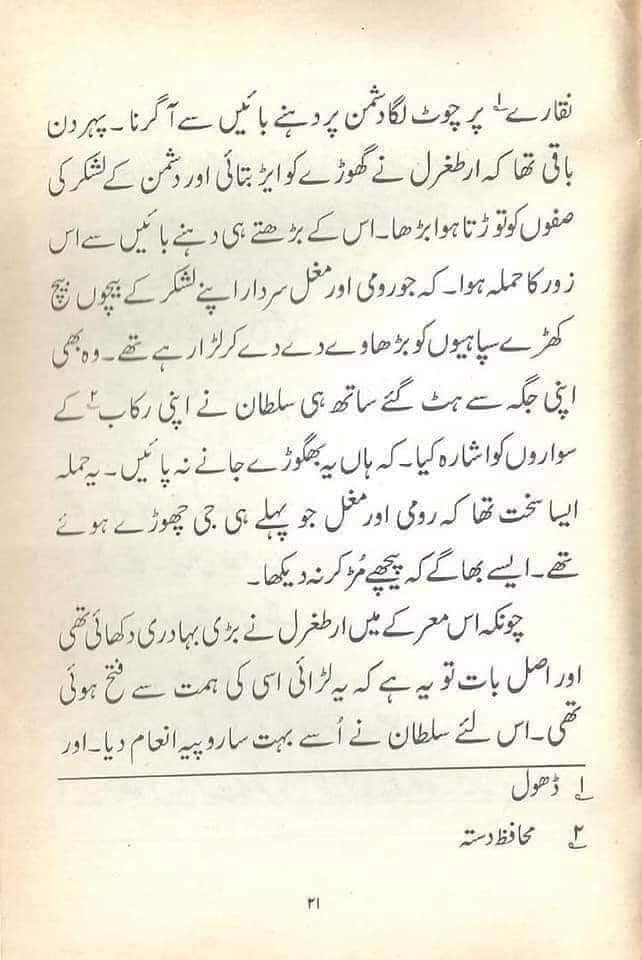 نقارے۱ پر چوٹ لگا دشمن پر دہنے بائیں سے آ گرنا ۔ پہر دن
باقی تھا کہ ارطغرل نے گھوڑے کو ایڑ بتائی اور دشمن کے لشکر کی
صفوں کو توڑتا ہوا بڑھا۔ اس کے بڑھتے ہی دہنے بائیں سے اس
زور کا حملہ ہوا ۔ کہ جو رومی اور مغل سردار اپنے لشکر کے بیچوں بیچ
کھڑے سپاہیوں کو بڑھاوے دے دے کر لڑا رہے تھے ۔ وہ بھی
اپنی جگہ سے ہٹ گئے ساتھ ہی سلطان نے اپنی رکاب۲ کے
سواروں کو اشارہ کیا ۔ کہ ہاں یہ بھگوڑے جانے نہ پائیں ۔ یہ حملہ
ایسا سخت تھا کہ رومی اور مغل جو پہلے ہی جی چھوڑے ہوئے
تھے ۔ ایسے بھاگے کہ پیچھے مُڑ کر نہ دیکھا ۔
چونکہ اس معرکے میں ارطغرل نے بڑی بہادری دکھائی تھی
اور اصل بات تو یہ ہے کہ یہ لڑائی اسی کی ہمت سے فتح ہوئی
تھی ۔ اس لئے سلطان نے اُسے بہت سا روپیہ انعام دیا ۔ اور
۱ ڈھول
۲ محافظ دستہ
۲۱